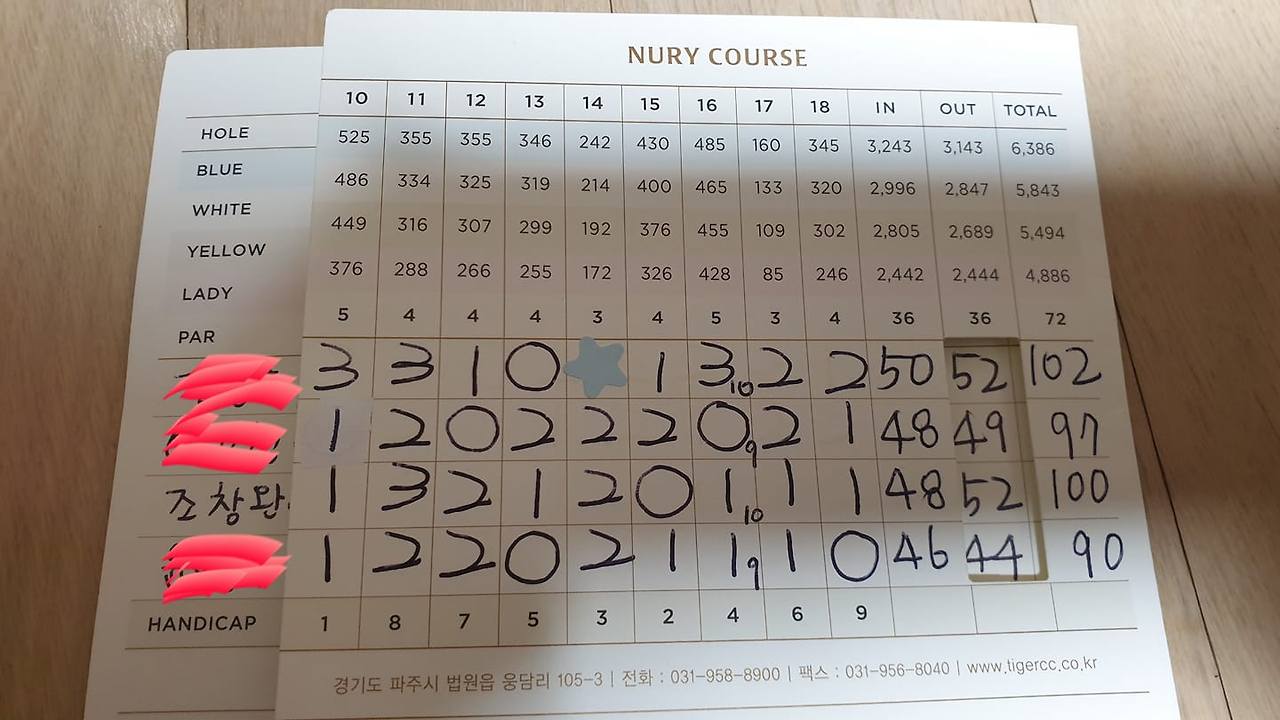 NURY COURSE
HOLE 10 11 12 13 14 15 16 17 18 IN OUT TOTAL
BLUE 525 355 355 346 242 430 485 160 345 3,243 3,143 6,386
WHITE 486 334 325 319 214 400 465 133 320 2,996 2,847 5,843
YELLOW 449 316 307 299 192 376 455 109 302 2,805 2,689 5,494
LADY 376 288 266 255 172 326 428 85 246 2,442 2,444 4,886
PAR 5 4 4 4 3 4 5 3 4 36 36 72
3 3 1 0 1 3 10 2 2 50 52 102
1 2 0 2 2 2 0 9 2 1 48 49 97
조창완 1 3 2 1 2 0 1 10 1 1 48 52 100
1 2 2 0 2 1 1 9 1 0 46 44 90
HANDICAP 1 8 7 5 3 2 4 6 9
경기도 파주시 법원읍 웅담리 105-3 | 전화 : 031-958-8900 | 팩스 : 031-956-8040 | www.tigercc.co.kr